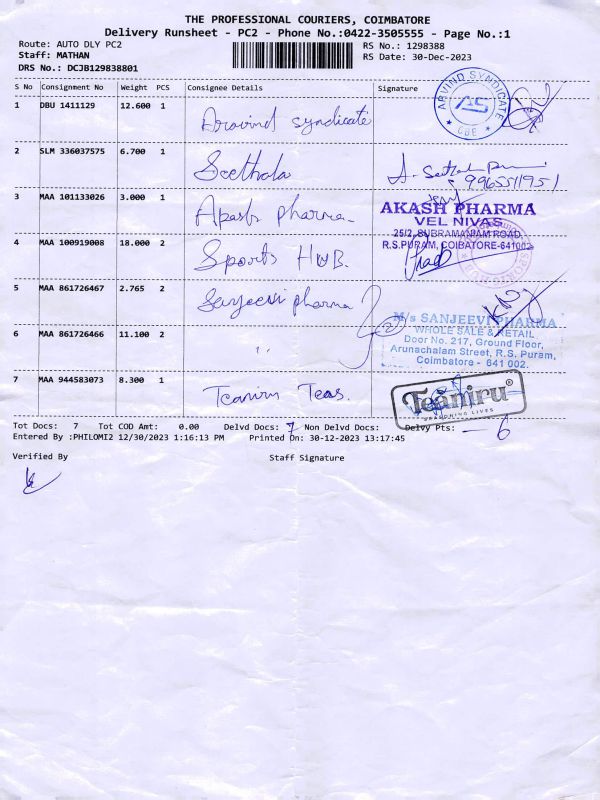 THE PROFESSIONAL COURIERS, COIMBATORE
Delivery Runsheet - PC2 - Phone No.:0422-3505555 - Page No.:1
Route: AUTO DLY PC2
RS No.: 1298388
Staff: MATHAN
RS Date: 30-Dec-2023
DRS No.: DCJB129838801
S No Consignment No Weight PCS Consignee Details Signature
1 DBU 1411129 12.600 1 Aravind syndicate
ARVIND SYNDICATE
AS
CBE
2 SLM 336037575 6.700 1 Seethala
9965511951
3 MAA 101133026 3.000 1 Akash pharma
AKASH PHARMA
VEL NIVAS,
25/2, SUBRAMANIAM ROAD,
R.S.PURAM, COIBATORE-641002
4 MAA 100919008 18.000 2 Sports HUB.
5 MAA 861726467 2.765 2 Sanjeevi pharma
2
M/s SANJEEVI PHARMA
WHOLE SALE & RETAIL
Door No. 217, Ground Floor,
Arunachalam Street, R.S. Puram,
Coimbatore - 641 002.
6 MAA 861726466 11.100 2 "
7 MAA 944583073 8.300 1 Teaniru Teas.
Teaniru®
Tot Docs: 7 Tot COD Amt: 0.00 Delvd Docs: 7 Non Delvd Docs: Delvy Pts: — 6
Entered By :PHILOMI2 12/30/2023 1:16:13 PM Printed On: 30-12-2023 13:17:45
Verified By Staff Signature